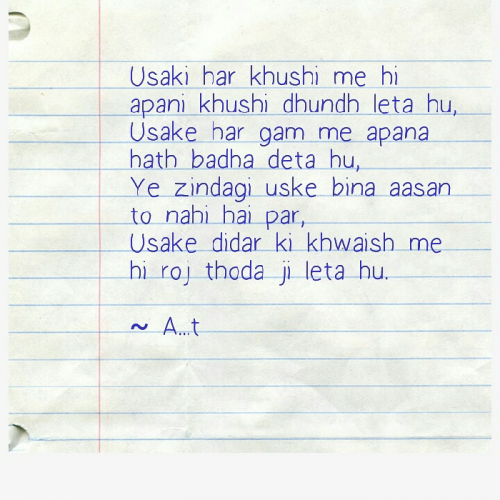 Usaki har khushi me hi
apani khushi dhundh leta hu,
Usake har gam me apana
hath badha deta hu,
Ye zindagi uske bina aasan
to nahi hai par,
Usake didar ki khwaish me
hi roj thoda ji leta hu.
~ A...t